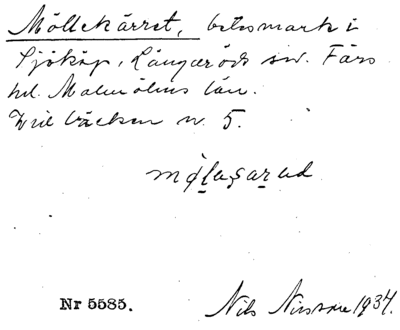 Möllekärret, betesmark i
Sjököp, Långaröds sn. Färs
hd. Malmöhus län.
Vid bäcken n. 5.
mǫ̀lašarəd
Nr 5585.
Nils Nilsson 1934.